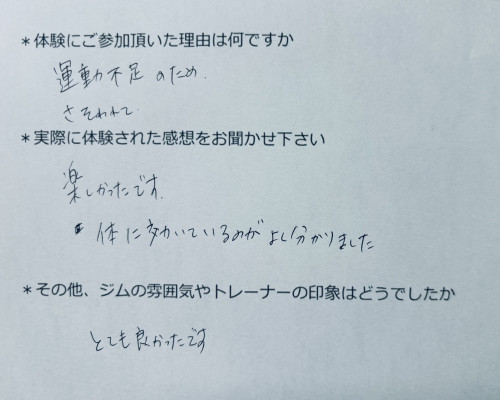 *体験にご参加頂いた理由は何ですか
運動不足のため.
さそわれて.
*実際に体験された感想をお聞かせ下さい
楽しかったです.
体に効いているのがよく分かりました
*その他、ジムの雰囲気やトレーナーの印象はどうでしたか
とても良かったです